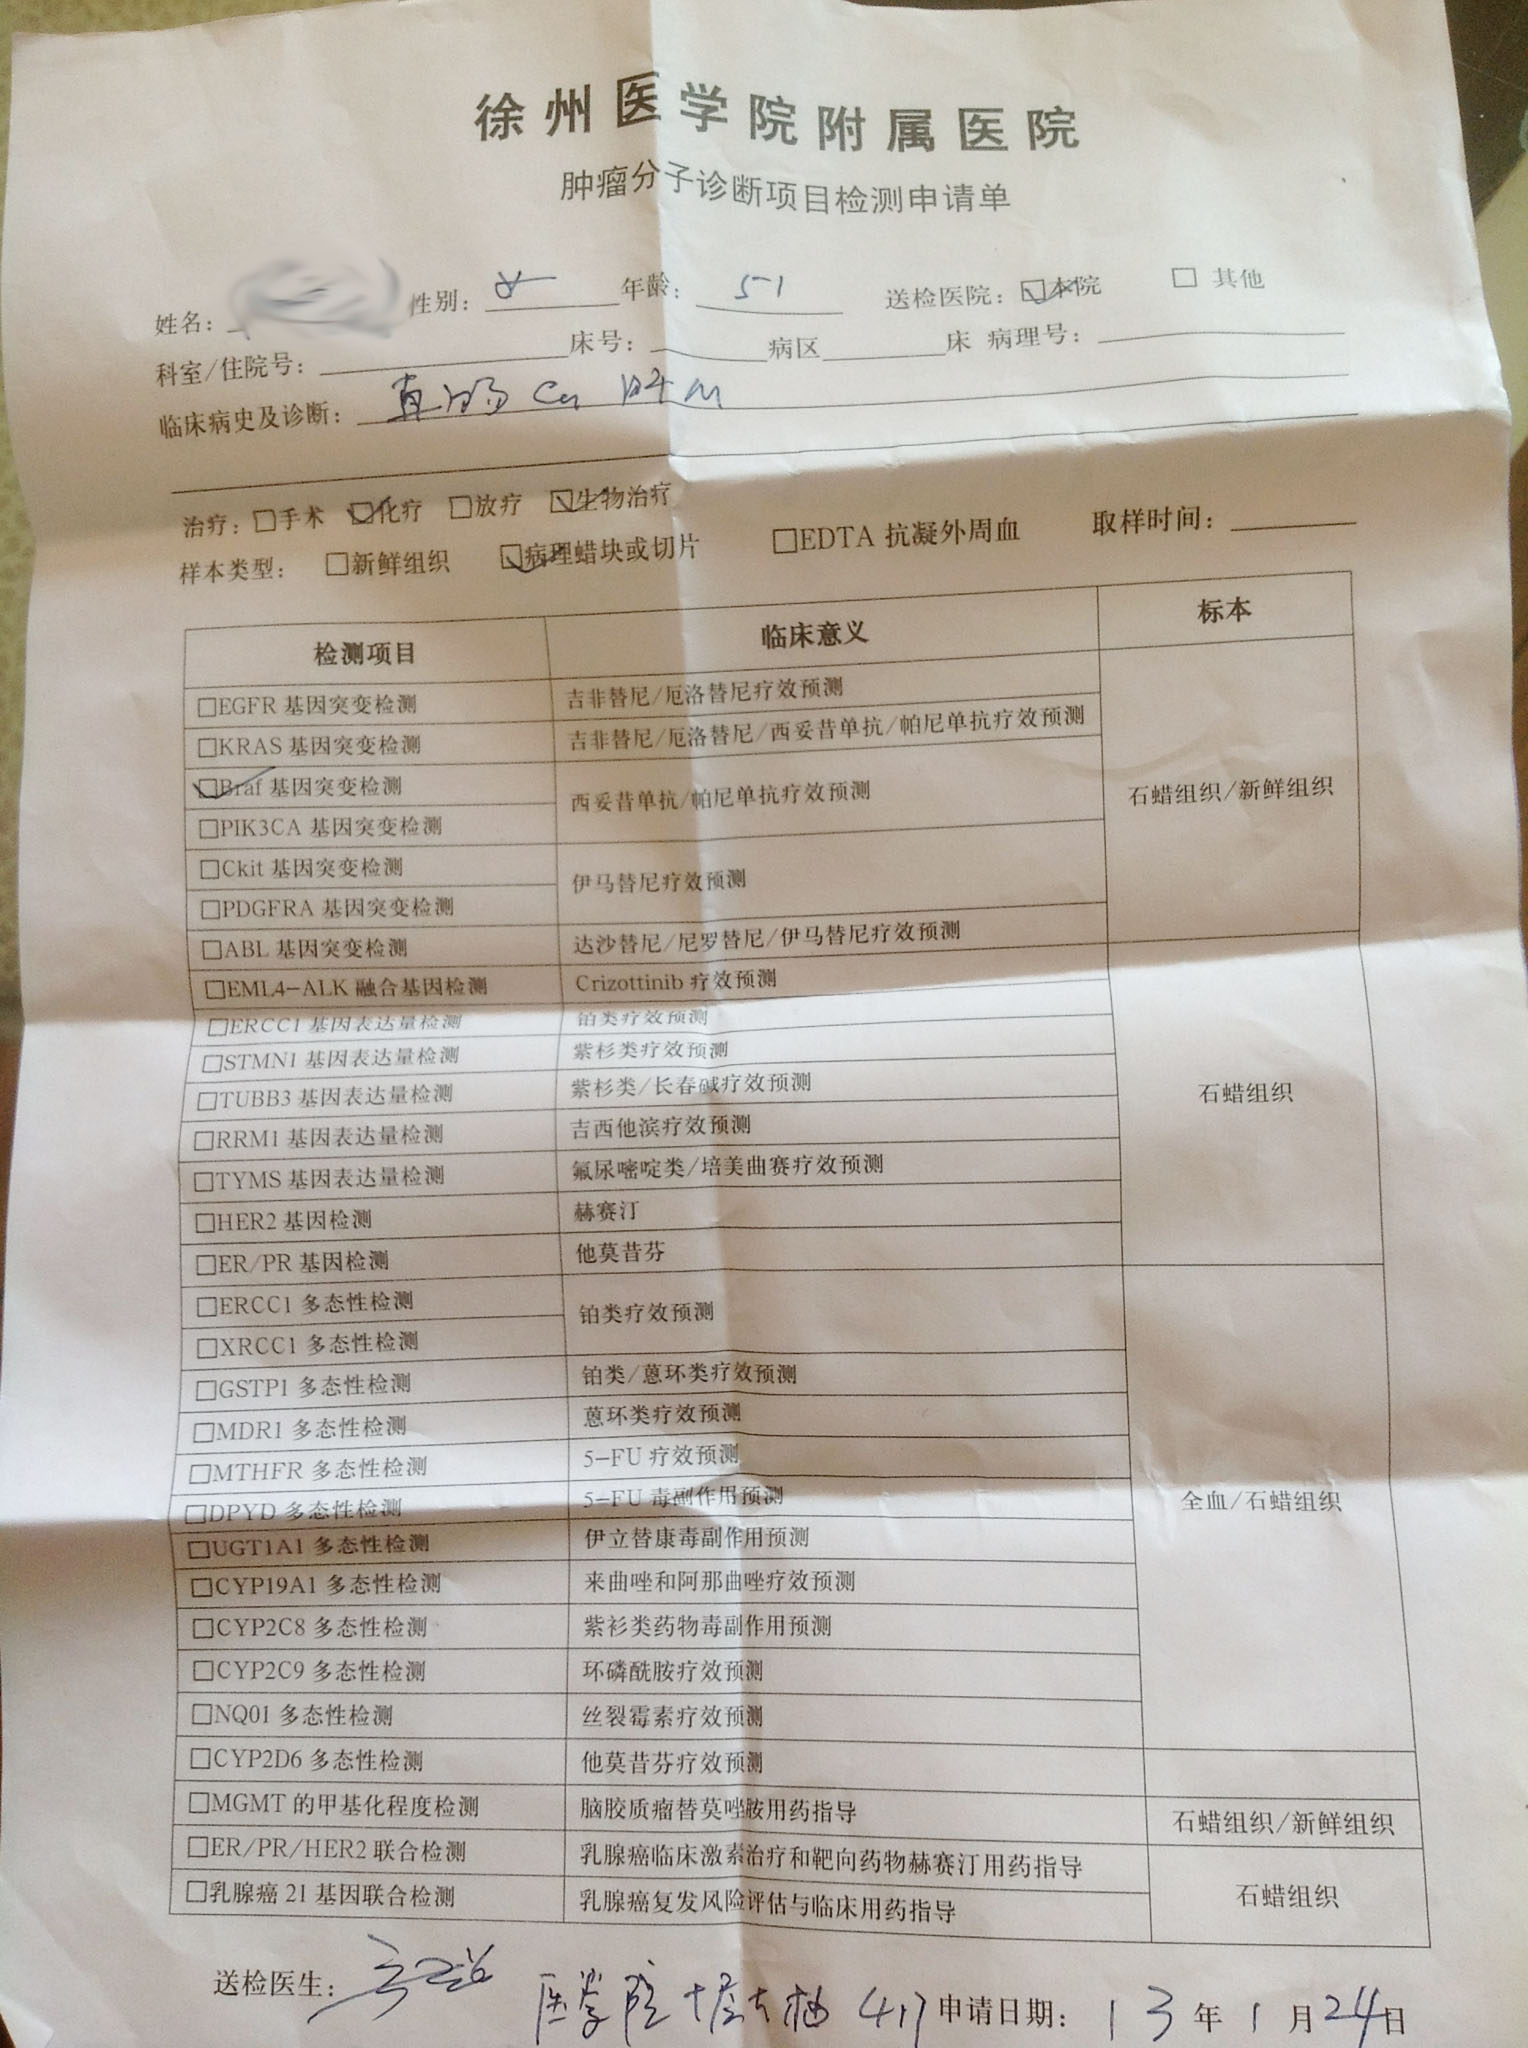 徐州医学院附属医院
肿瘤分子诊断项目检测申请单
姓名： 性别： 女 年龄： 51 送检医院：☑本院 □ 其他
科室/住院号： 床号： 病区 床 病理号：
临床病史及诊断： 直肠Ca 肝M
治疗：□手术 ☑化疗 □放疗 ☑生物治疗
样本类型： □新鲜组织 ☑病理蜡块或切片 □EDTA 抗凝外周血 取样时间：
检测项目 临床意义 标本
□EGFR 基因突变检测 吉非替尼/厄洛替尼疗效预测
□KRAS 基因突变检测 吉非替尼/厄洛替尼/西妥昔单抗/帕尼单抗疗效预测
☑Braf 基因突变检测 西妥昔单抗/帕尼单抗疗效预测 石蜡组织/新鲜组织
□PIK3CA 基因突变检测
□Ckit 基因突变检测 伊马替尼疗效预测
□PDGFRA 基因突变检测
□ABL 基因突变检测 达沙替尼/尼罗替尼/伊马替尼疗效预测
□EML4-ALK 融合基因检测 Crizottinib 疗效预测
□ERCC1 基因表达量检测 铂类疗效预测
□STMN1 基因表达量检测 紫杉类疗效预测
□TUBB3 基因表达量检测 紫杉类/长春碱疗效预测 石蜡组织
□RRM1 基因表达量检测 吉西他滨疗效预测
□TYMS 基因表达量检测 氟尿嘧啶类/培美曲赛疗效预测
□HER2 基因检测 赫赛汀
□ER/PR 基因检测 他莫昔芬
□ERCC1 多态性检测 铂类疗效预测
□XRCC1 多态性检测
□GSTP1 多态性检测 铂类/蒽环类疗效预测
□MDR1 多态性检测 蒽环类疗效预测
□MTHFR 多态性检测 5-FU 疗效预测
□DPYD 多态性检测 5-FU 毒副作用预测 全血/石蜡组织
□UGT1A1 多态性检测 伊立替康毒副作用预测
□CYP19A1 多态性检测 来曲唑和阿那曲唑疗效预测
□CYP2C8 多态性检测 紫衫类药物毒副作用预测
□CYP2C9 多态性检测 环磷酰胺疗效预测
□NQ01 多态性检测 丝裂霉素疗效预测
□CYP2D6 多态性检测 他莫昔芬疗效预测
□MGMT 的甲基化程度检测 脑胶质瘤替莫唑胺用药指导 石蜡组织/新鲜组织
□ER/PR/HER2 联合检测 乳腺癌临床激素治疗和靶向药物赫赛汀用药指导
□乳腺癌 21 基因联合检测 乳腺癌复发风险评估与临床用药指导 石蜡组织
送检医生： 医学院 417 申请日期： 13 年 1 月 24 日